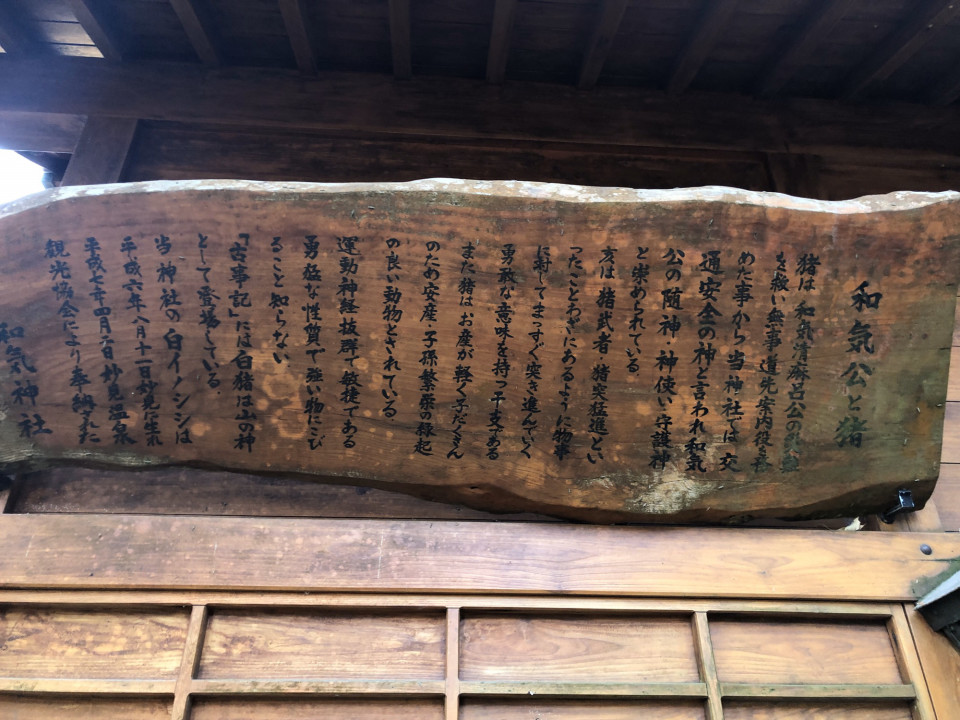 和気公と猪
猪は 和気清麻呂公の
を救い無事道先案内役を務
めた事から当神社では 交
通安全の神と言われ和気
公の随神・神使い・守護神
と崇められている。
亥は 猪武者・猪突猛進とい
ったことわざにあるように物事
に対してまっすぐ突き進んでいく
勇敢な意味を持つ干支である
また猪はお産が軽く子だくさん
のため安産・子孫繁栄の縁起
の良い動物とされている
運動神経抜群で敏捷である
勇猛な性質で強い物にこび
ること知らない
「古事記」には白猪は山の神
として登場している。
当神社の白イノシシは
平成六年八月十一日妙見生れ
平成七年四月二日妙見温泉
観光協会により奉納された
和気神社